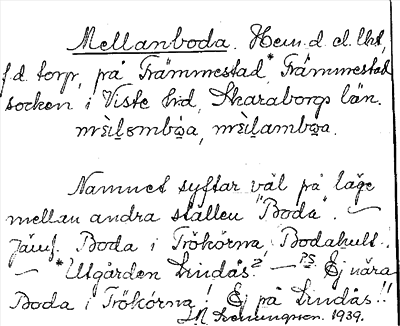 Mellanboda. Hem.d. el. lht,
f.d. torp, på Främmestad,* Främmestad
socken i Viste hd, Skaraborgs län.
Namnet syftar väl på läge
mellan andra ställen "Boda". —
Jämf. Boda i Trökörna, Bodahult.
— *Utgården Lindås? — PS. Ej nära
Boda i Trökörna! Ej på Lindås!!
1939.